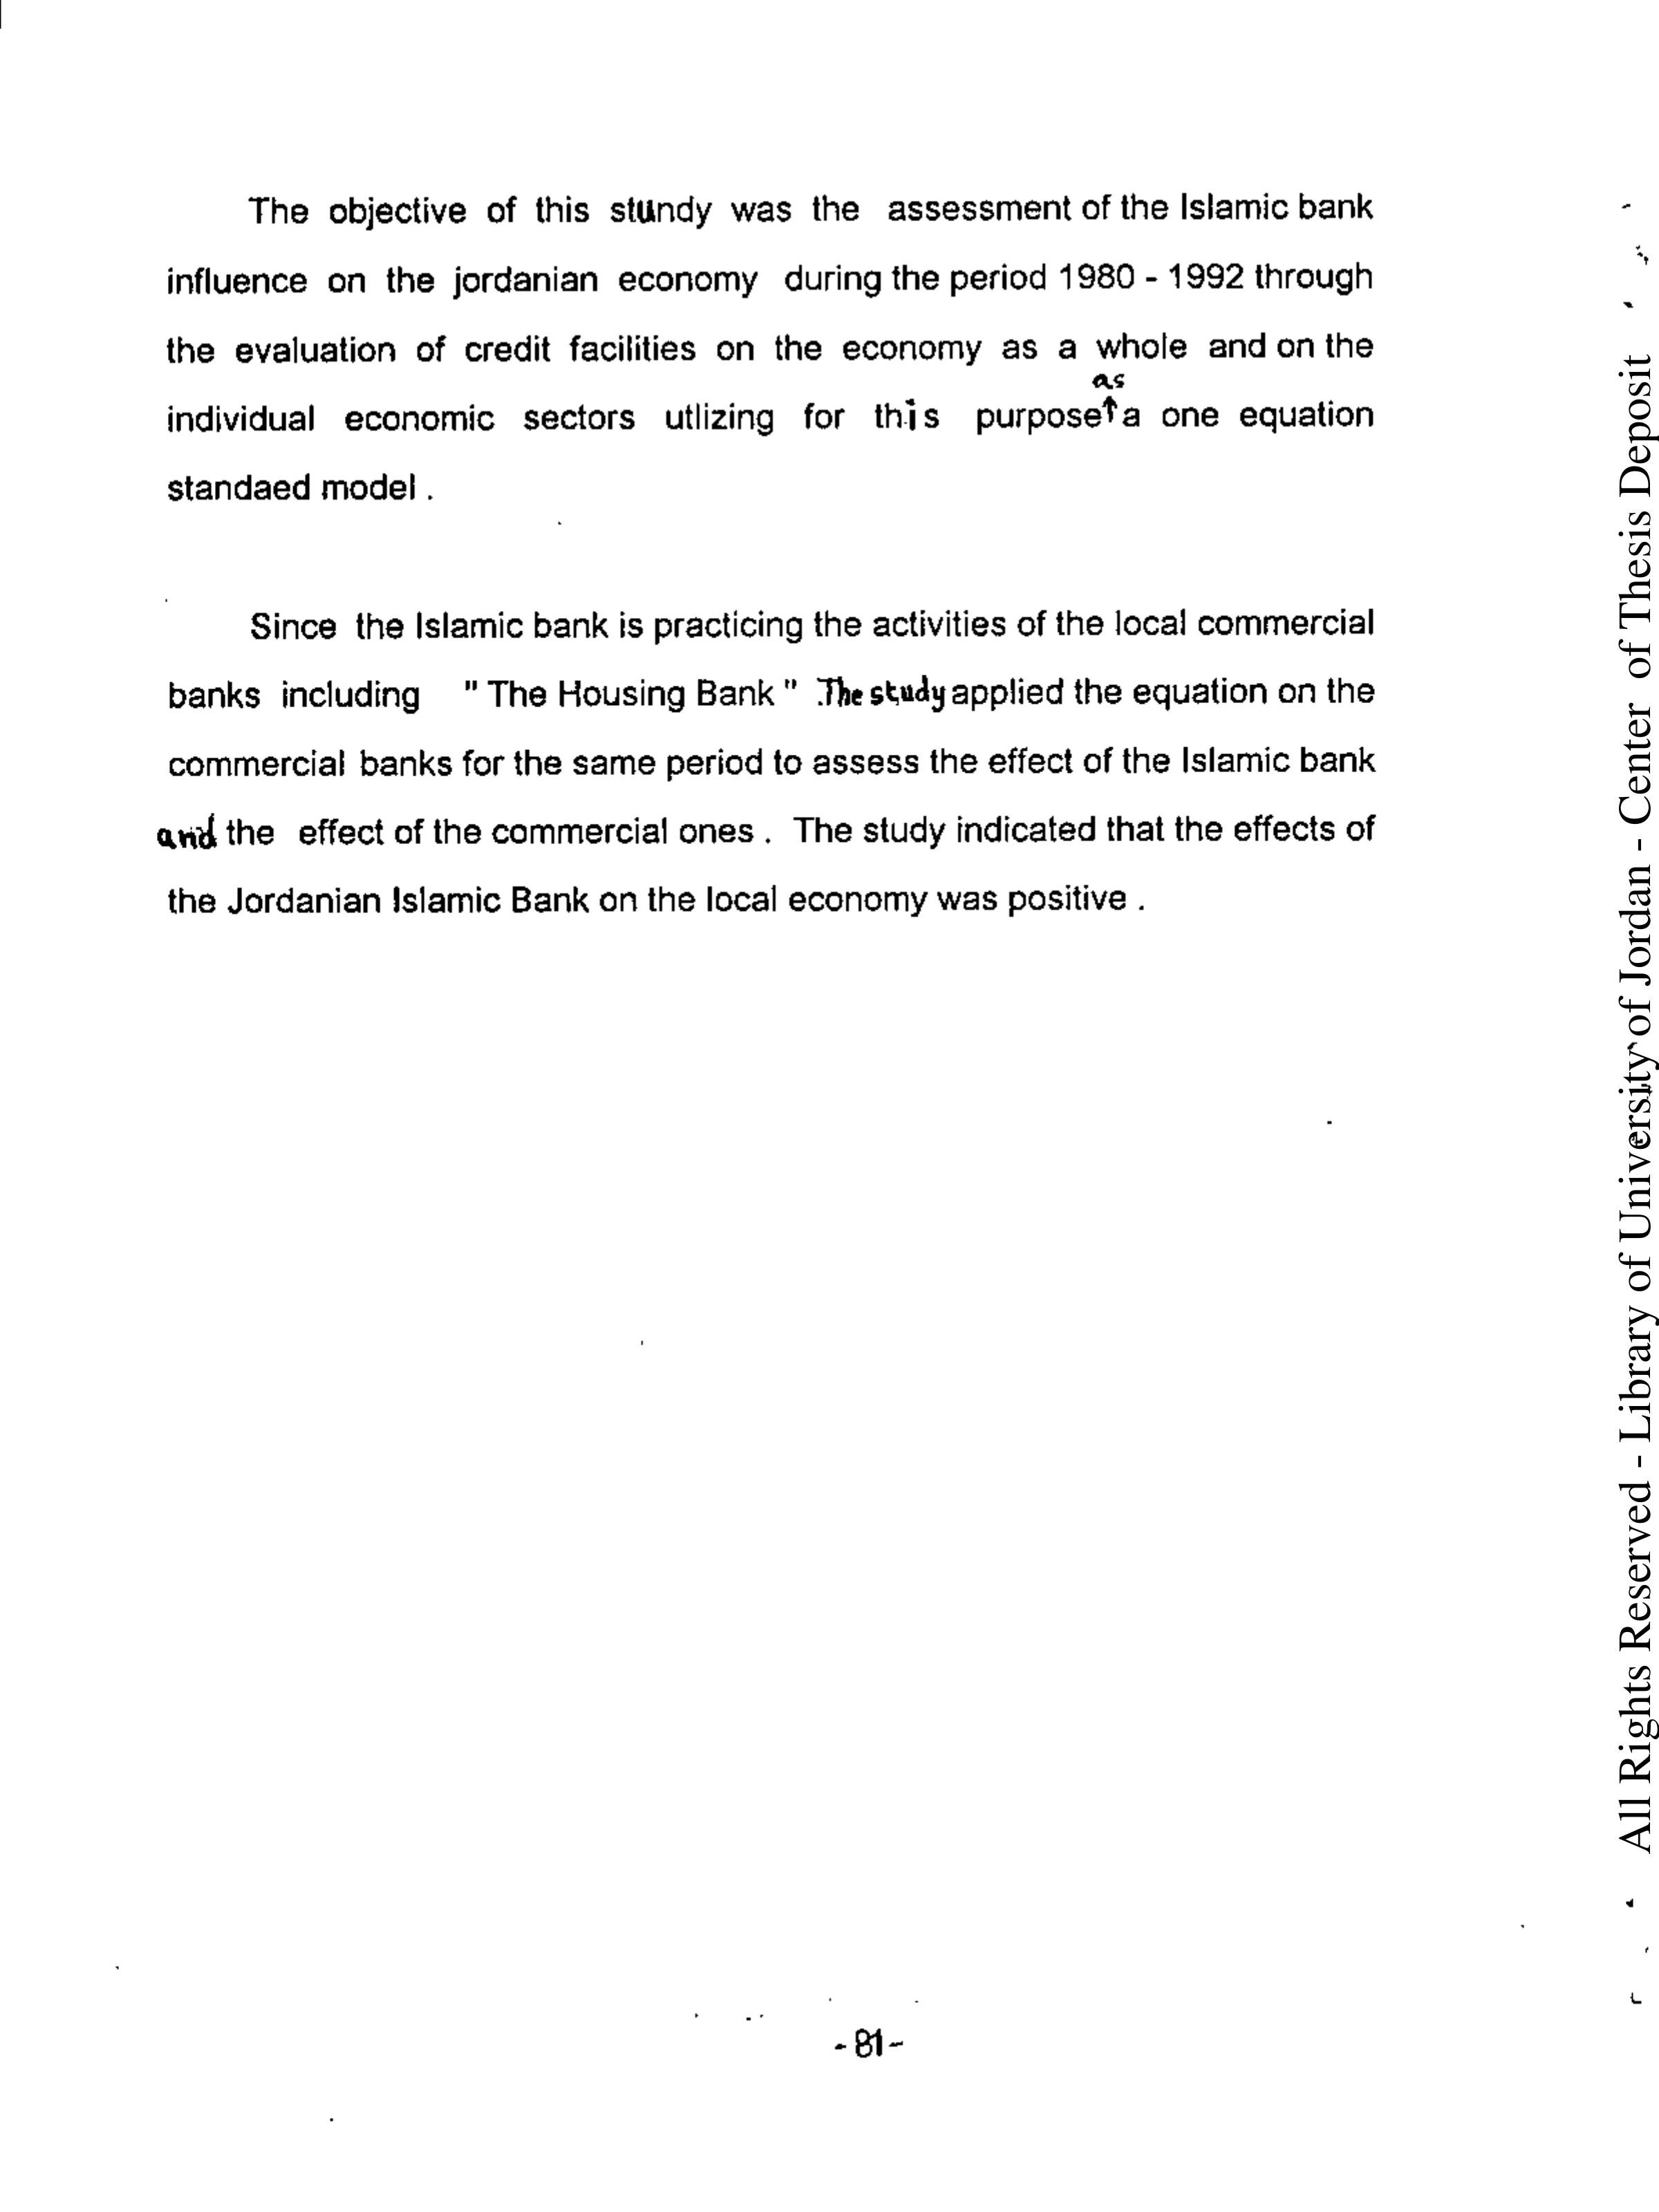 The objective of this stundy was the assessment of the Islamic bank
influence on the jordanian economy during the period 1980 - 1992 through
the evaluation of credit facilities on the economy as a whole and on the
as
individual economic sectors utlizing for this purpose↑a one equation
standaed model .
Since the Islamic bank is practicing the activities of the local commercial
banks including " The Housing Bank " .The study applied the equation on the
commercial banks for the same period to assess the effect of the Islamic bank
and the effect of the commercial ones . The study indicated that the effects of
the Jordanian Islamic Bank on the local economy was positive .
- 81 -
All Rights Reserved - Library of University of Jordan - Center of Thesis Deposit